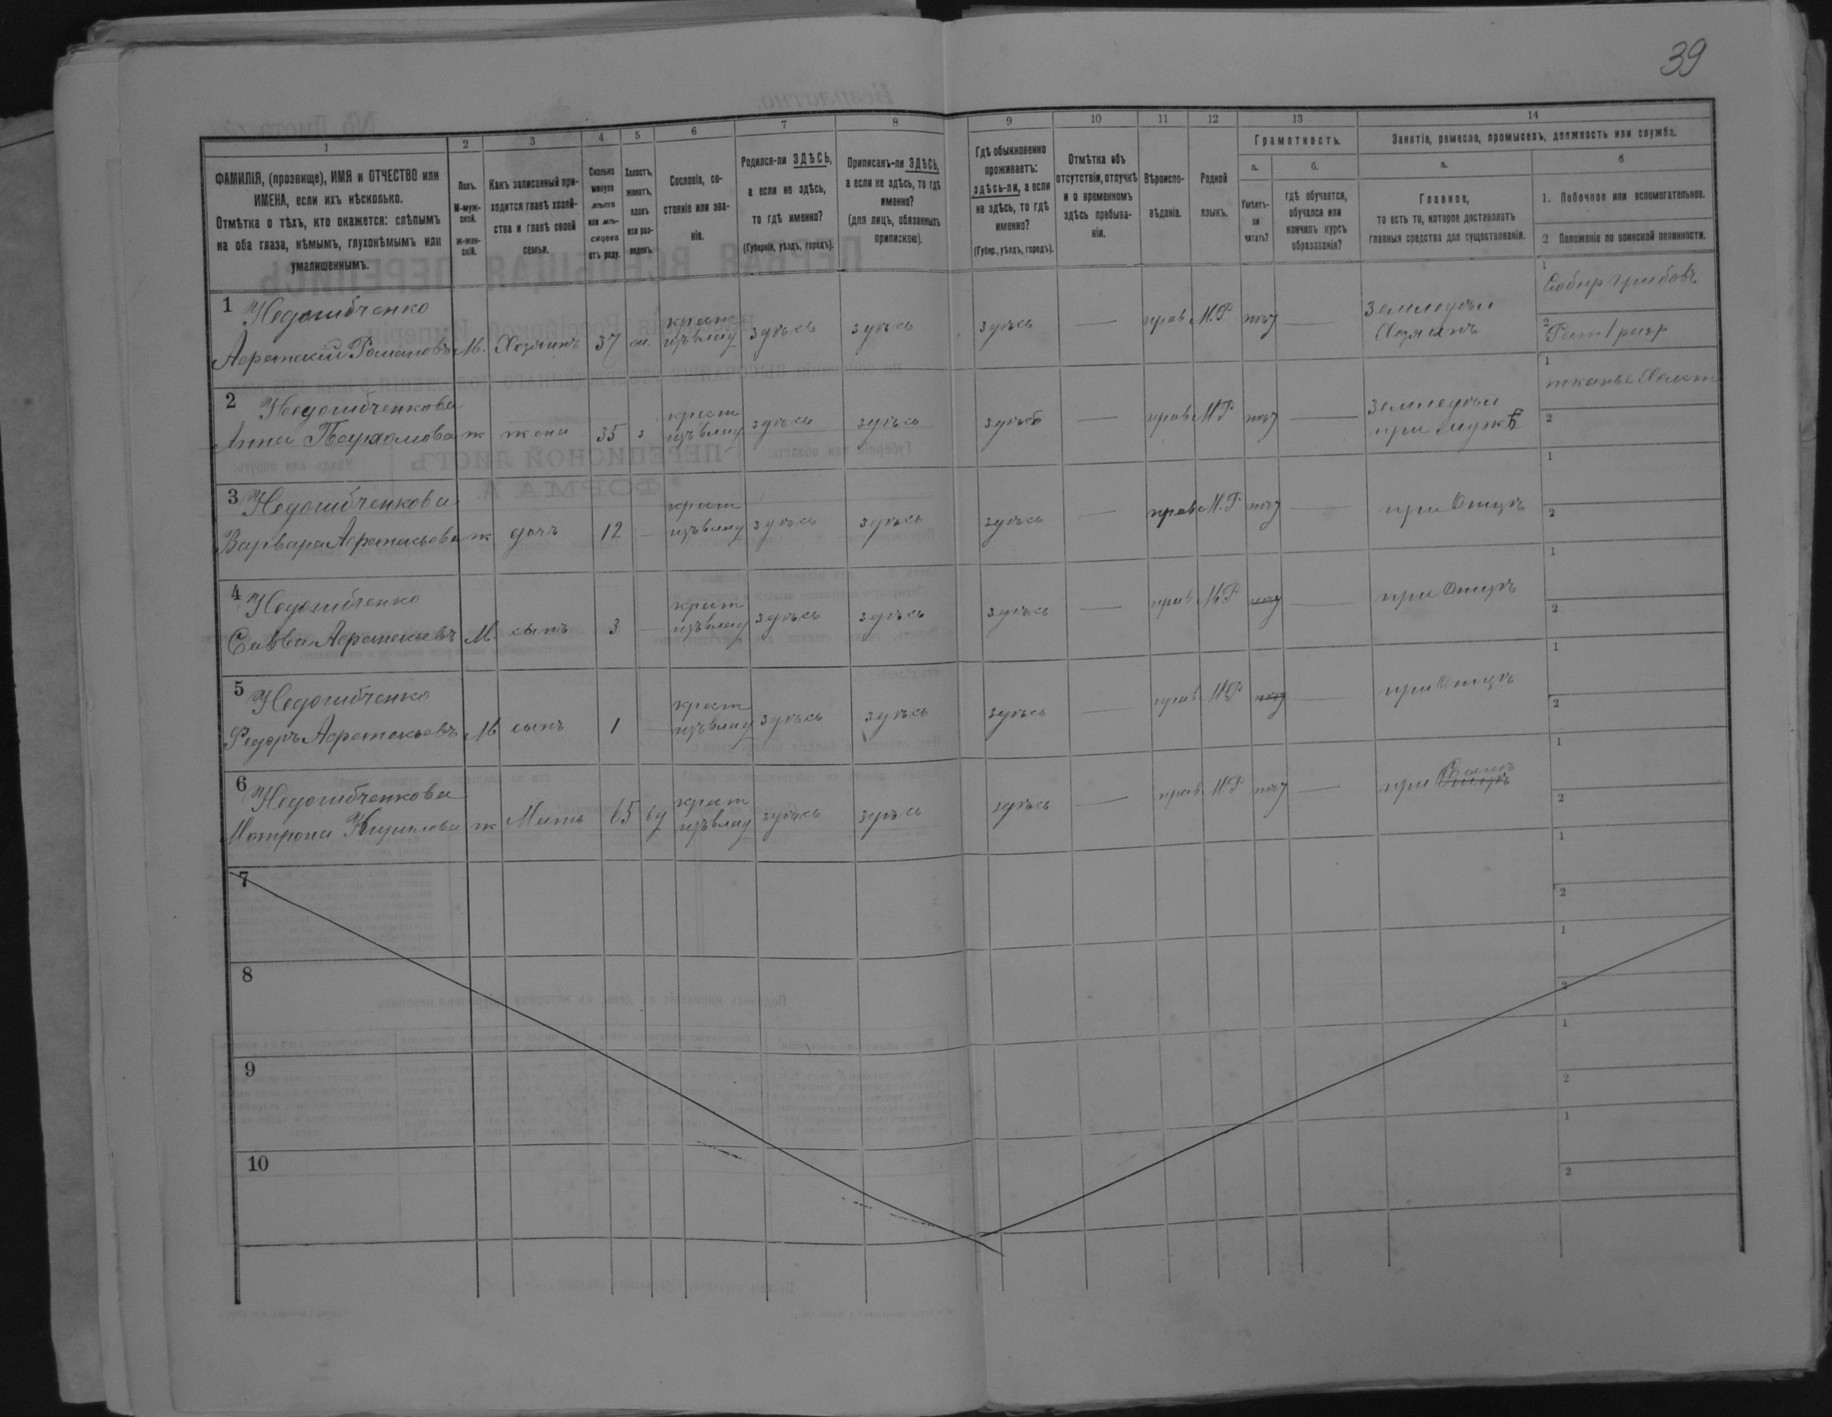 39
1
2
3
4
5
6
7
8
9
10
11
12
13
14
ФАМИЛІЯ, (прозвище), ИМЯ и ОТЧЕСТВО или
ИМЕНА, если ихъ нѣсколько.
Отмѣтка о тѣхъ, кто окажется: слѣпымъ
на оба глаза, нѣмымъ, глухонѣмымъ или
умалишеннымъ.
Полъ.
М-муж-
ской.
Ж-жен-
скій.
Какъ записанный при-
ходится главѣ хозяй-
ства и главѣ своей
семьи.
Сколько
минуло
лѣтъ
или мѣ-
сяцевъ
отъ роду.
Холостъ,
женатъ,
вдовъ
или раз-
веденъ.
Сословіе, со-
стояніе или зва-
ніе.
Родился-ли ЗДѢСЬ,
а если не здѣсь,
то гдѣ именно?
(Губернія, уѣздъ, городъ).
Приписанъ-ли ЗДѢСЬ,
а если не здѣсь, то гдѣ
именно?
(для лицъ, обязанныхъ
припискою).
Гдѣ обыкновенно
проживаетъ:
здѣсь-ли, а если
не здѣсь, то гдѣ
именно?
(Губер., уѣздъ, городъ).
Отмѣтка объ
отсутствіи, отлучкѣ
и о временномъ
здѣсь пребыва-
ніи.
Вѣроиспо-
вѣданіе.
Родной
языкъ.
Грамотность.
а.
Умѣетъ-
ли
читать?
б.
гдѣ обучается,
обучался или
кончилъ курсъ
образованія?
Занятіе, ремесло, промыселъ, должность или служба.
а.
Главное,
то есть то, которое доставляетъ
главныя средства для существованія.
б
1. Побочное или вспомогательное.
2 Положеніе по воинской повинности.
1 Недогибченко
Афанасій Романовъ М. Хозяинъ 37 ж. крест изъ влад здѣсь здѣсь здѣсь — прав М.Р нѣтъ — Земледѣл Хозяинъ
1 Собир грибовъ
2 Рат 1 разр
2 Недогибченкова
Анна ж жена 35 з крест изъ влад здѣсь здѣсь здѣсь — прав М.Р нѣтъ — Земледѣл при мужѣ
1 тканье Холст
2
3 Недогибченкова
Варвара Афанасьева ж дочь 12 — крест изъ влад здѣсь здѣсь здѣсь — прав М.Р нѣтъ — при Отцѣ
1
2
4 Недогибченко
Савва Афанасьевъ М. сынъ 3 — крест изъ влад здѣсь здѣсь здѣсь — прав М.Р нѣтъ — при Отцѣ
1
2
5 Недогибченко
Федоръ Афанасьевъ М сынъ 1 — крест изъ влад здѣсь здѣсь здѣсь — прав М.Р нѣтъ — при Отцѣ
1
2
6 Недогибченкова
Матрона Кирилова ж Мать 65 вд крест изъ влад здѣсь здѣсь здѣсь — прав М.Р нѣтъ — при
1
2
7
1
2
8
1
2
9
1
2
10
1
2